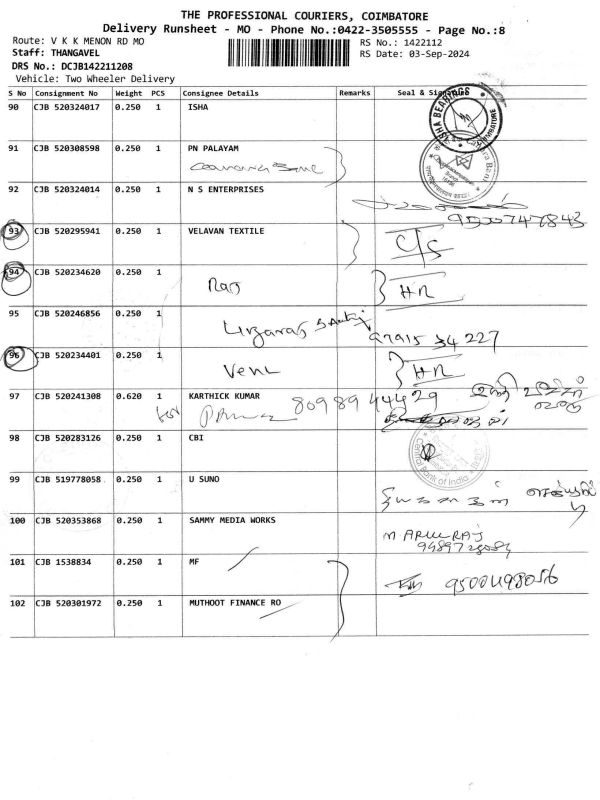 THE PROFESSIONAL COURIERS, COIMBATORE
Delivery Runsheet - MO - Phone No.:0422-3505555 - Page No.:8
Route: V K K MENON RD MO
RS No.: 1422112
Staff: THANGAVEL
RS Date: 03-Sep-2024
DRS No.: DCJB142211208
Vehicle: Two Wheeler Delivery
S No Consignment No Weight PCS Consignee Details Remarks Seal & Signature
90 CJB 520324017 0.250 1 ISHA
91 CJB 520308598 0.250 1 PN PALAYAM
92 CJB 520324014 0.250 1 N S ENTERPRISES
93 CJB 520295941 0.250 1 VELAVAN TEXTILE
C/S
94 CJB 520234620 0.250 1
Raj HR
95 CJB 520246856 0.250 1
96 CJB 520234401 0.250 1
HR
97 CJB 520241308 0.620 1 KARTHICK KUMAR
8098944429
98 CJB 520283126 0.250 1 CBI
Central Bank of India
99 CJB 519778058 0.250 1 U SUNO
100 CJB 520353868 0.250 1 SAMMY MEDIA WORKS
M ARULRAJ
101 CJB 1538834 0.250 1 MF
102 CJB 520301972 0.250 1 MUTHOOT FINANCE RO